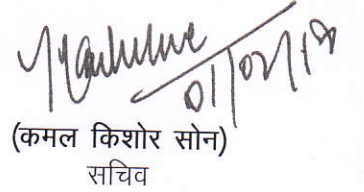 01/02/18
(कमल किशोर सोन)
सचिव